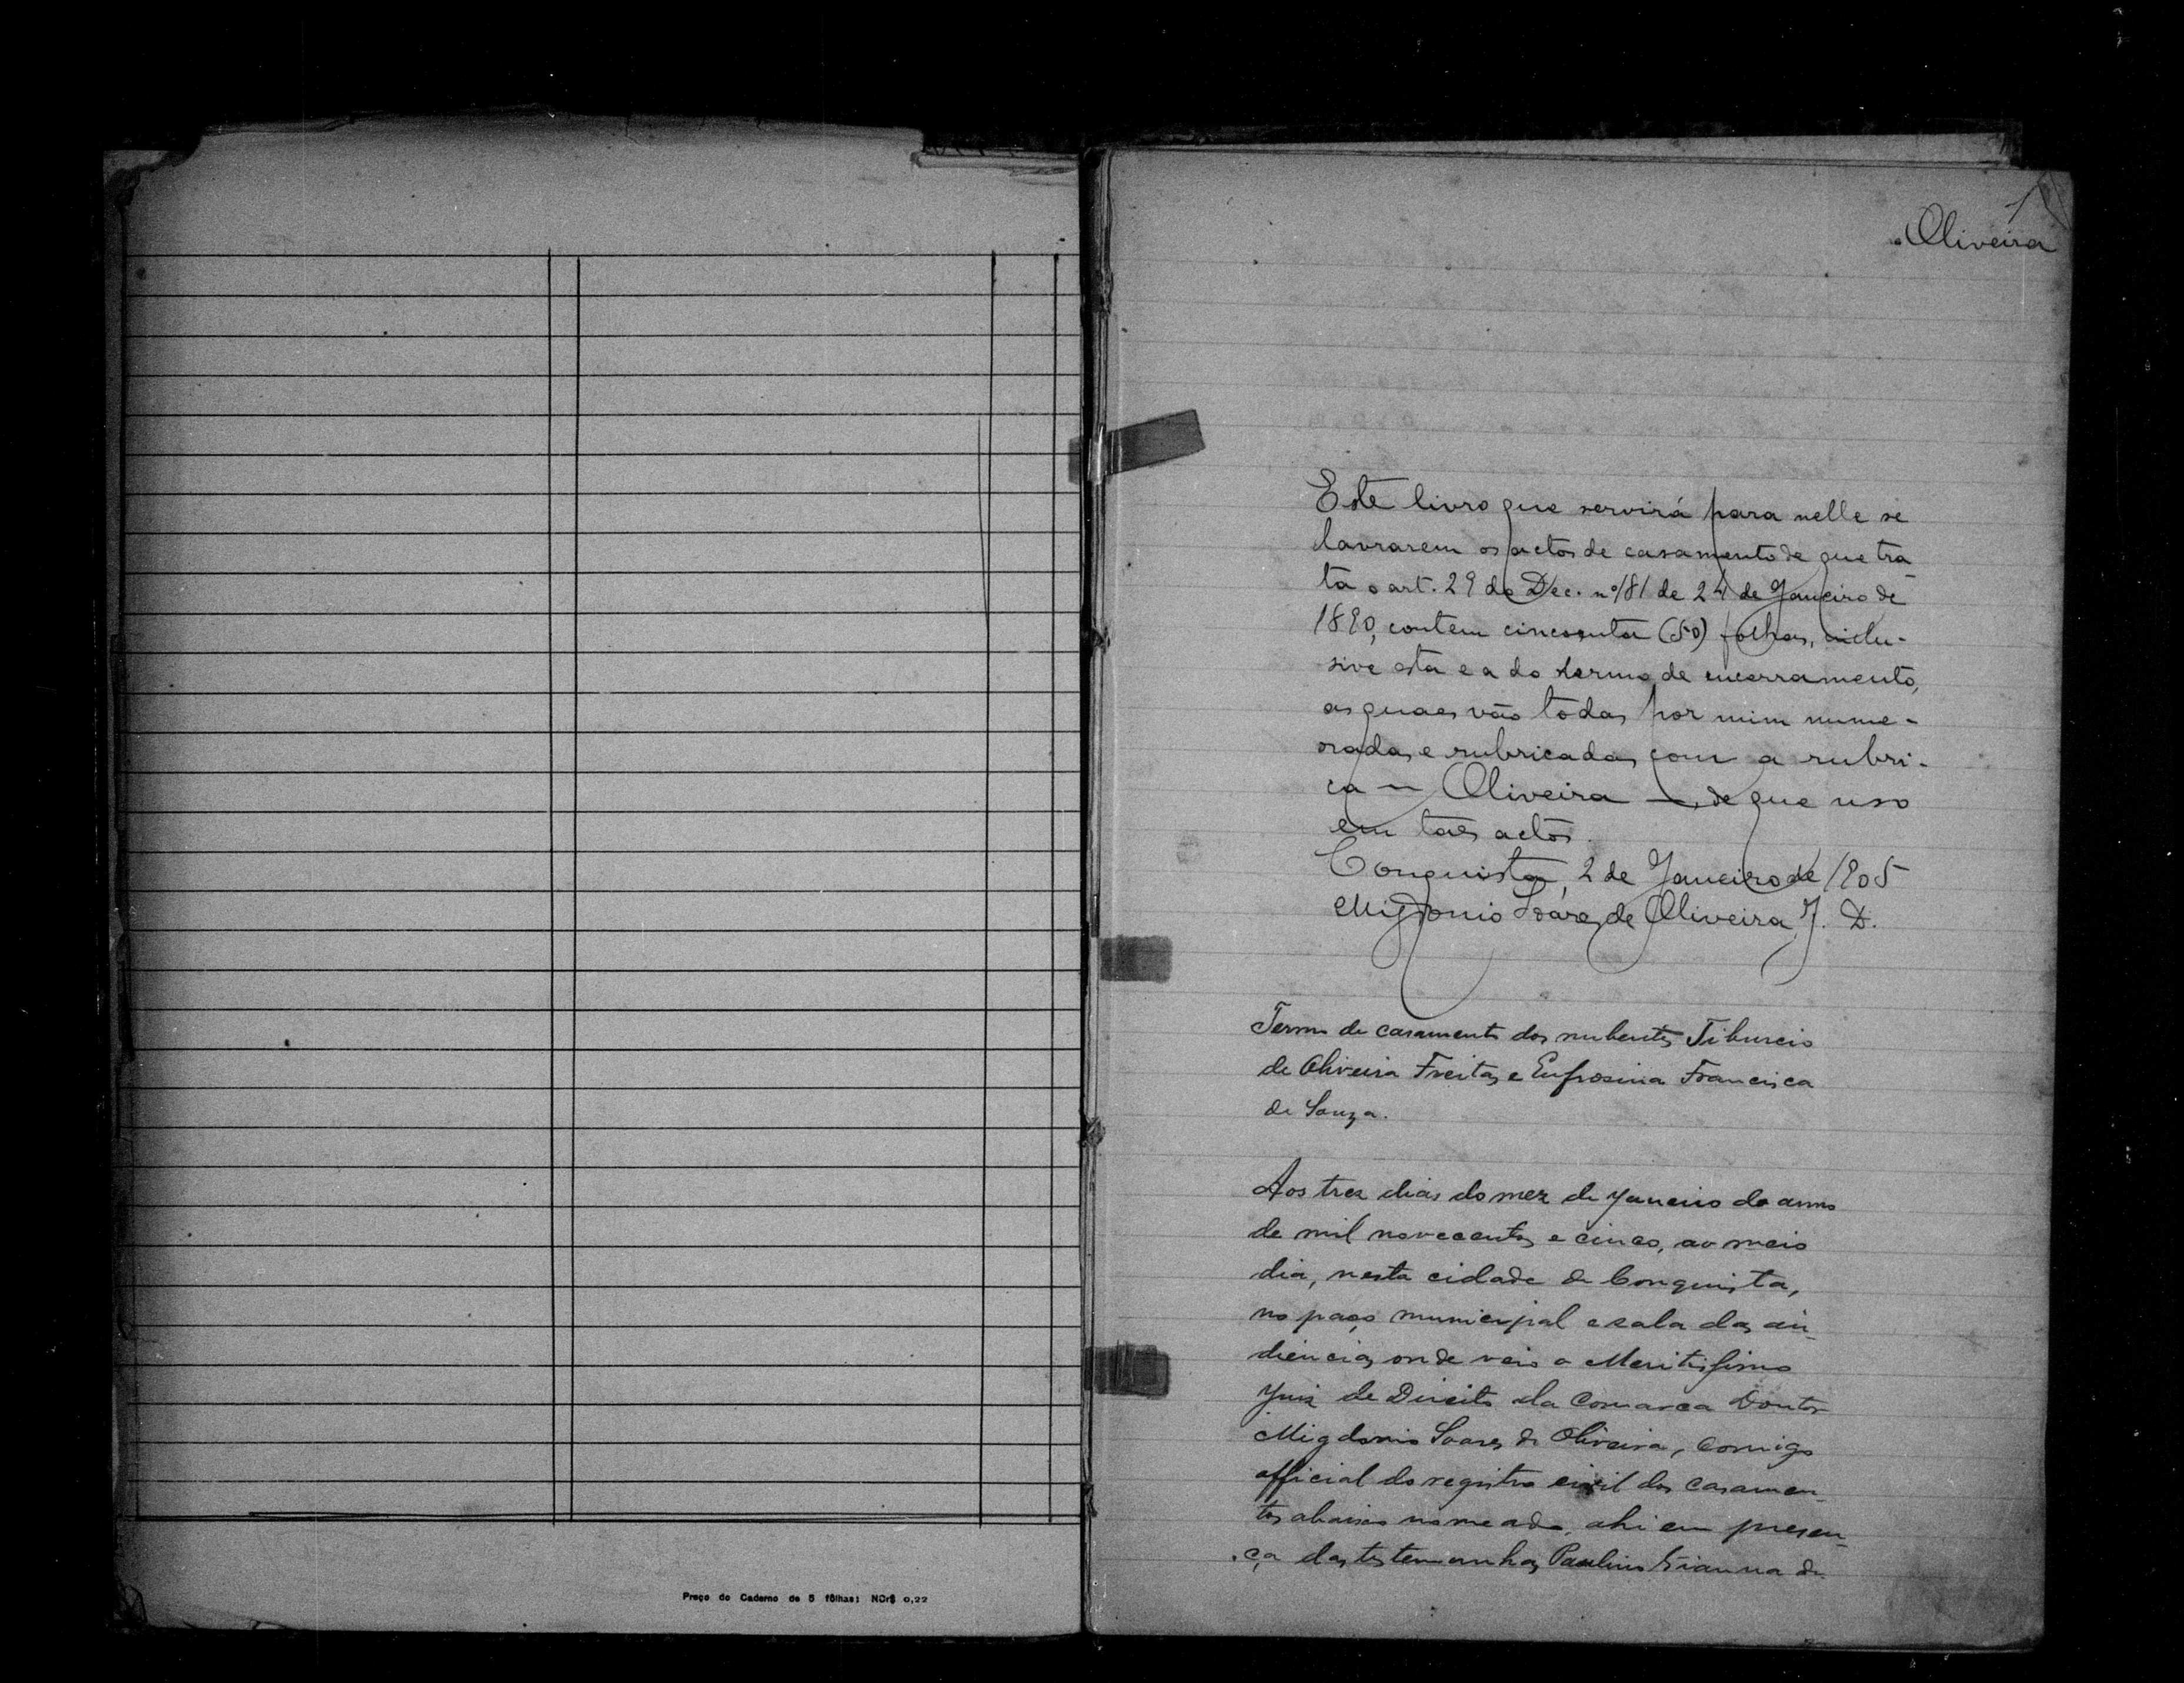 Preço do Caderno de 5 fôlhas: NCr$ 0,22
1
Oliveira
Este livro que servirá para nelle se
lavrarem os actos de casamento de que tra
ta o art. 29 do Dec. nº 181 de 24 de Janeiro de
1890, contem cincoenta (50) folhas, inclu-
sive esta e a do termo de encerramento,
as quaes vão todas por mim nume-
radas e rubricadas com a rubri-
ca — Oliveira —, de que uso
em taes actos.
Conquista, 2 de Janeiro de 1905
Migdonio Soares de Oliveira J. D.
Termo de casamento dos nubentes Tiburcio
de Oliveira Freitas e Eufrosina Francisca
de Souza.
Aos trez dias do mez de Janeiro do anno
de mil novecentos e cinco, ao meio
dia, nesta cidade de Conquista,
no paço municipal e sala das au-
diencias onde veio o Meritissimo
Juiz de Direito da Comarca Doutor
Migdonio Soares de Oliveira, comigo
official do registro civil dos casamen-
tos abaixo nomeado, ahi em presen-
ça das testemunhas Paulino Vianna de